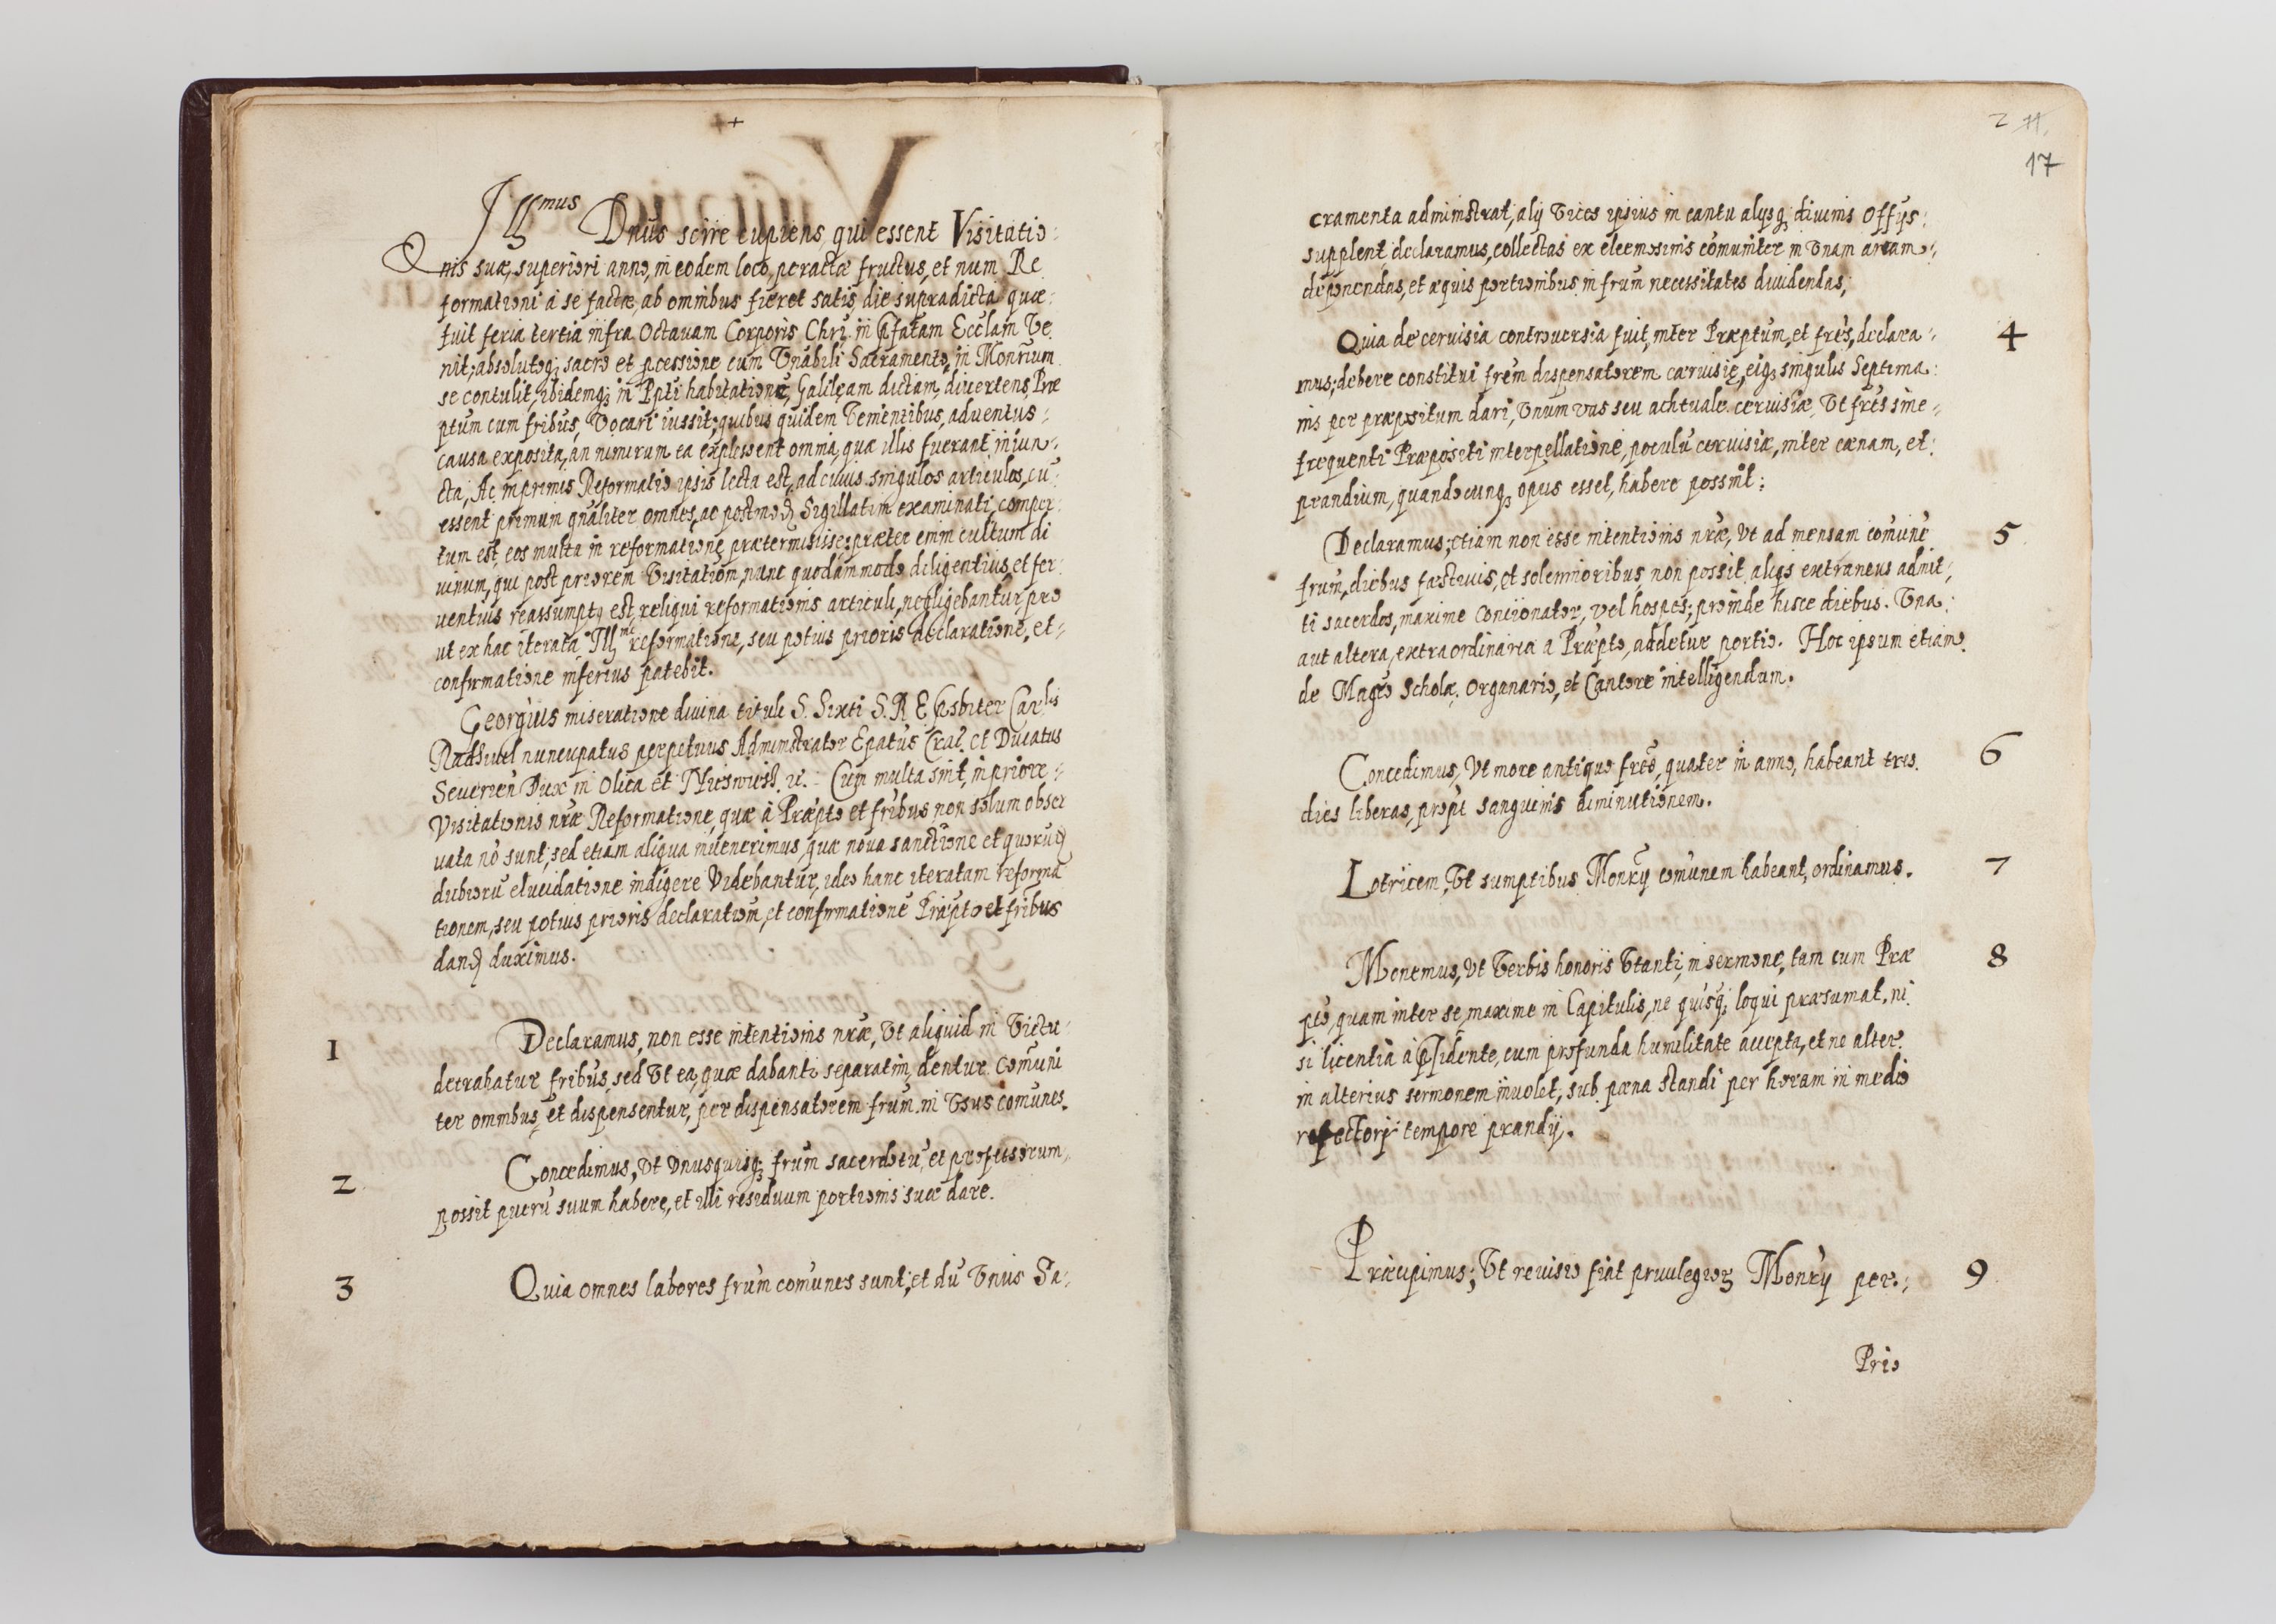 Illmus Dnus scire cupiens, qui essent Visitatio:
nis suæ, superiori anno, in eodem loco, peractæ fructus, et num Re
formationi a se factæ, ab omnibus fieret satis, die supradicta quæ
fuit feria tertia infra Octauam Corporis Chri, in pfatam Ecclam Ve
nit, absolutoq; sacro et pcessione cum Vnabili Sacramento, in Monrium
se contulit, ibidemq; in Ppti habitatione, Galileam dictam, diuertens, Præ
ptum cum fribus, Vocari iussit; quibus quidem Venientibus, aduentus
causa exposita, an nimirum ea explessent omnia, quæ illis fuerant iniun:
cta, Ac imprimis Reformatio ipsis lecta est, ad cuius singulos articulos, cu
essent primum gnaliter omnes, ac postmod Sigillatim examinati, comper
tum est, eos multa in reformatione prætermisisse: præter enim cultum di
uinum, qui post priorem Visitation, nunc quodammodo diligentius, et fer
uentius reassumpt est, reliqui reformationis articuli, negligebantur, pro
ut ex hac iterata Illmi reformatione, seu potius prioris declaratione, et
confirmatione inferius patebit.
Georgius miseratione diuina tituli S. Sixti S. R E Psbiter Carlis
Radziuil nuncupatus perpetuus Administrator Epatus Crac. et Ducatus
Seuerien Dux in Olica et Nieswiesz. &. Cum multa sint, in priore
Visitationis nræ Reformatione, quæ à Præpto et fribus non solum obser
uata nō sunt, sed etiam aliqua inuenerimus, quæ noua sanctione et quorud
dubioru elucidatione indigere Videbantur, ideo hanc iteratam reforma
tionem, seu potius prioris declaration, et confirmatione Præpto et fribus
dand duximus.
1 Declaramus, non esse intentionis nræ, Vt aliquid in Victu
detrahatur fribus, sed Vt ea, quæ dabant separatim, dentur Comuni
ter omnibus, et dispensentur, per dispensatorem frum in Vsus comunes.
2 Concedimus, Vt Vnusquisq; frum sacerdotu, et professorum,
possit pueru suum habere, et illi residuum portionis suæ dare.
3 Quia omnes labores frum comunes sunt, et du Vnus Sa
2 11.
17
cramenta administrat, alij Vices ipsius in cantu alijsq; diuinis Offijs
supplent declaramus, collectas ex eleemosinis comuniter in Vnam arcam
deponendas, et æquis portionibus in frum necessitates diuidendas;
Quia de ceruisia controuersia fuit, inter Præptum, et fres, declara 4
mus; debere constitui frem dispensatorem cæruisiæ, eiq; singulis Septima
nis per præpositum dari, Vnum vas seu achtuale ceruisiæ, Vt fres sine
frequenti Præpositi interpellatione, poculu ceruisiæ, inter cænam, et
prandium, quandocunq; opus esset, habere possint;
Declaramus, etiam non esse intentionis nræ, Vt ad mensam comune 5
frum, diebus fæstiuis, et solennioribus non possit aliqs extraneus admit
ti sacerdos, maxime concionator, vel hospes; proinde hisce diebus. Vna
aut altera, extraordinaria a Præpto, addetur portio. Hoc ipsum etiam
de Magro Scholæ. Organario, et Cantore intelligendum.
Concedimus, Vt more antiquo fres, quater in anno, habeant tres 6
dies liberas, propt sanguinis diminutionem.
Lotricem, Vt sumptibus Monrij comunem habeant, ordinamus. 7
Monemus, Vt Verbis honoris Vtant, in sermone, tam cum Præ 8
pto, quam inter se, maxime in Capitulis, ne quisq; loqui præsumat, ni
si licentia à psidente, cum profunda humilitate accepta, et ne alter
in alterius sermonem inuolet, sub pæna standi per horam in medio
refectorij tempore prandij.
Præcipimus; Vt reuisio fiat priuilegior Monrij per 9
Prio